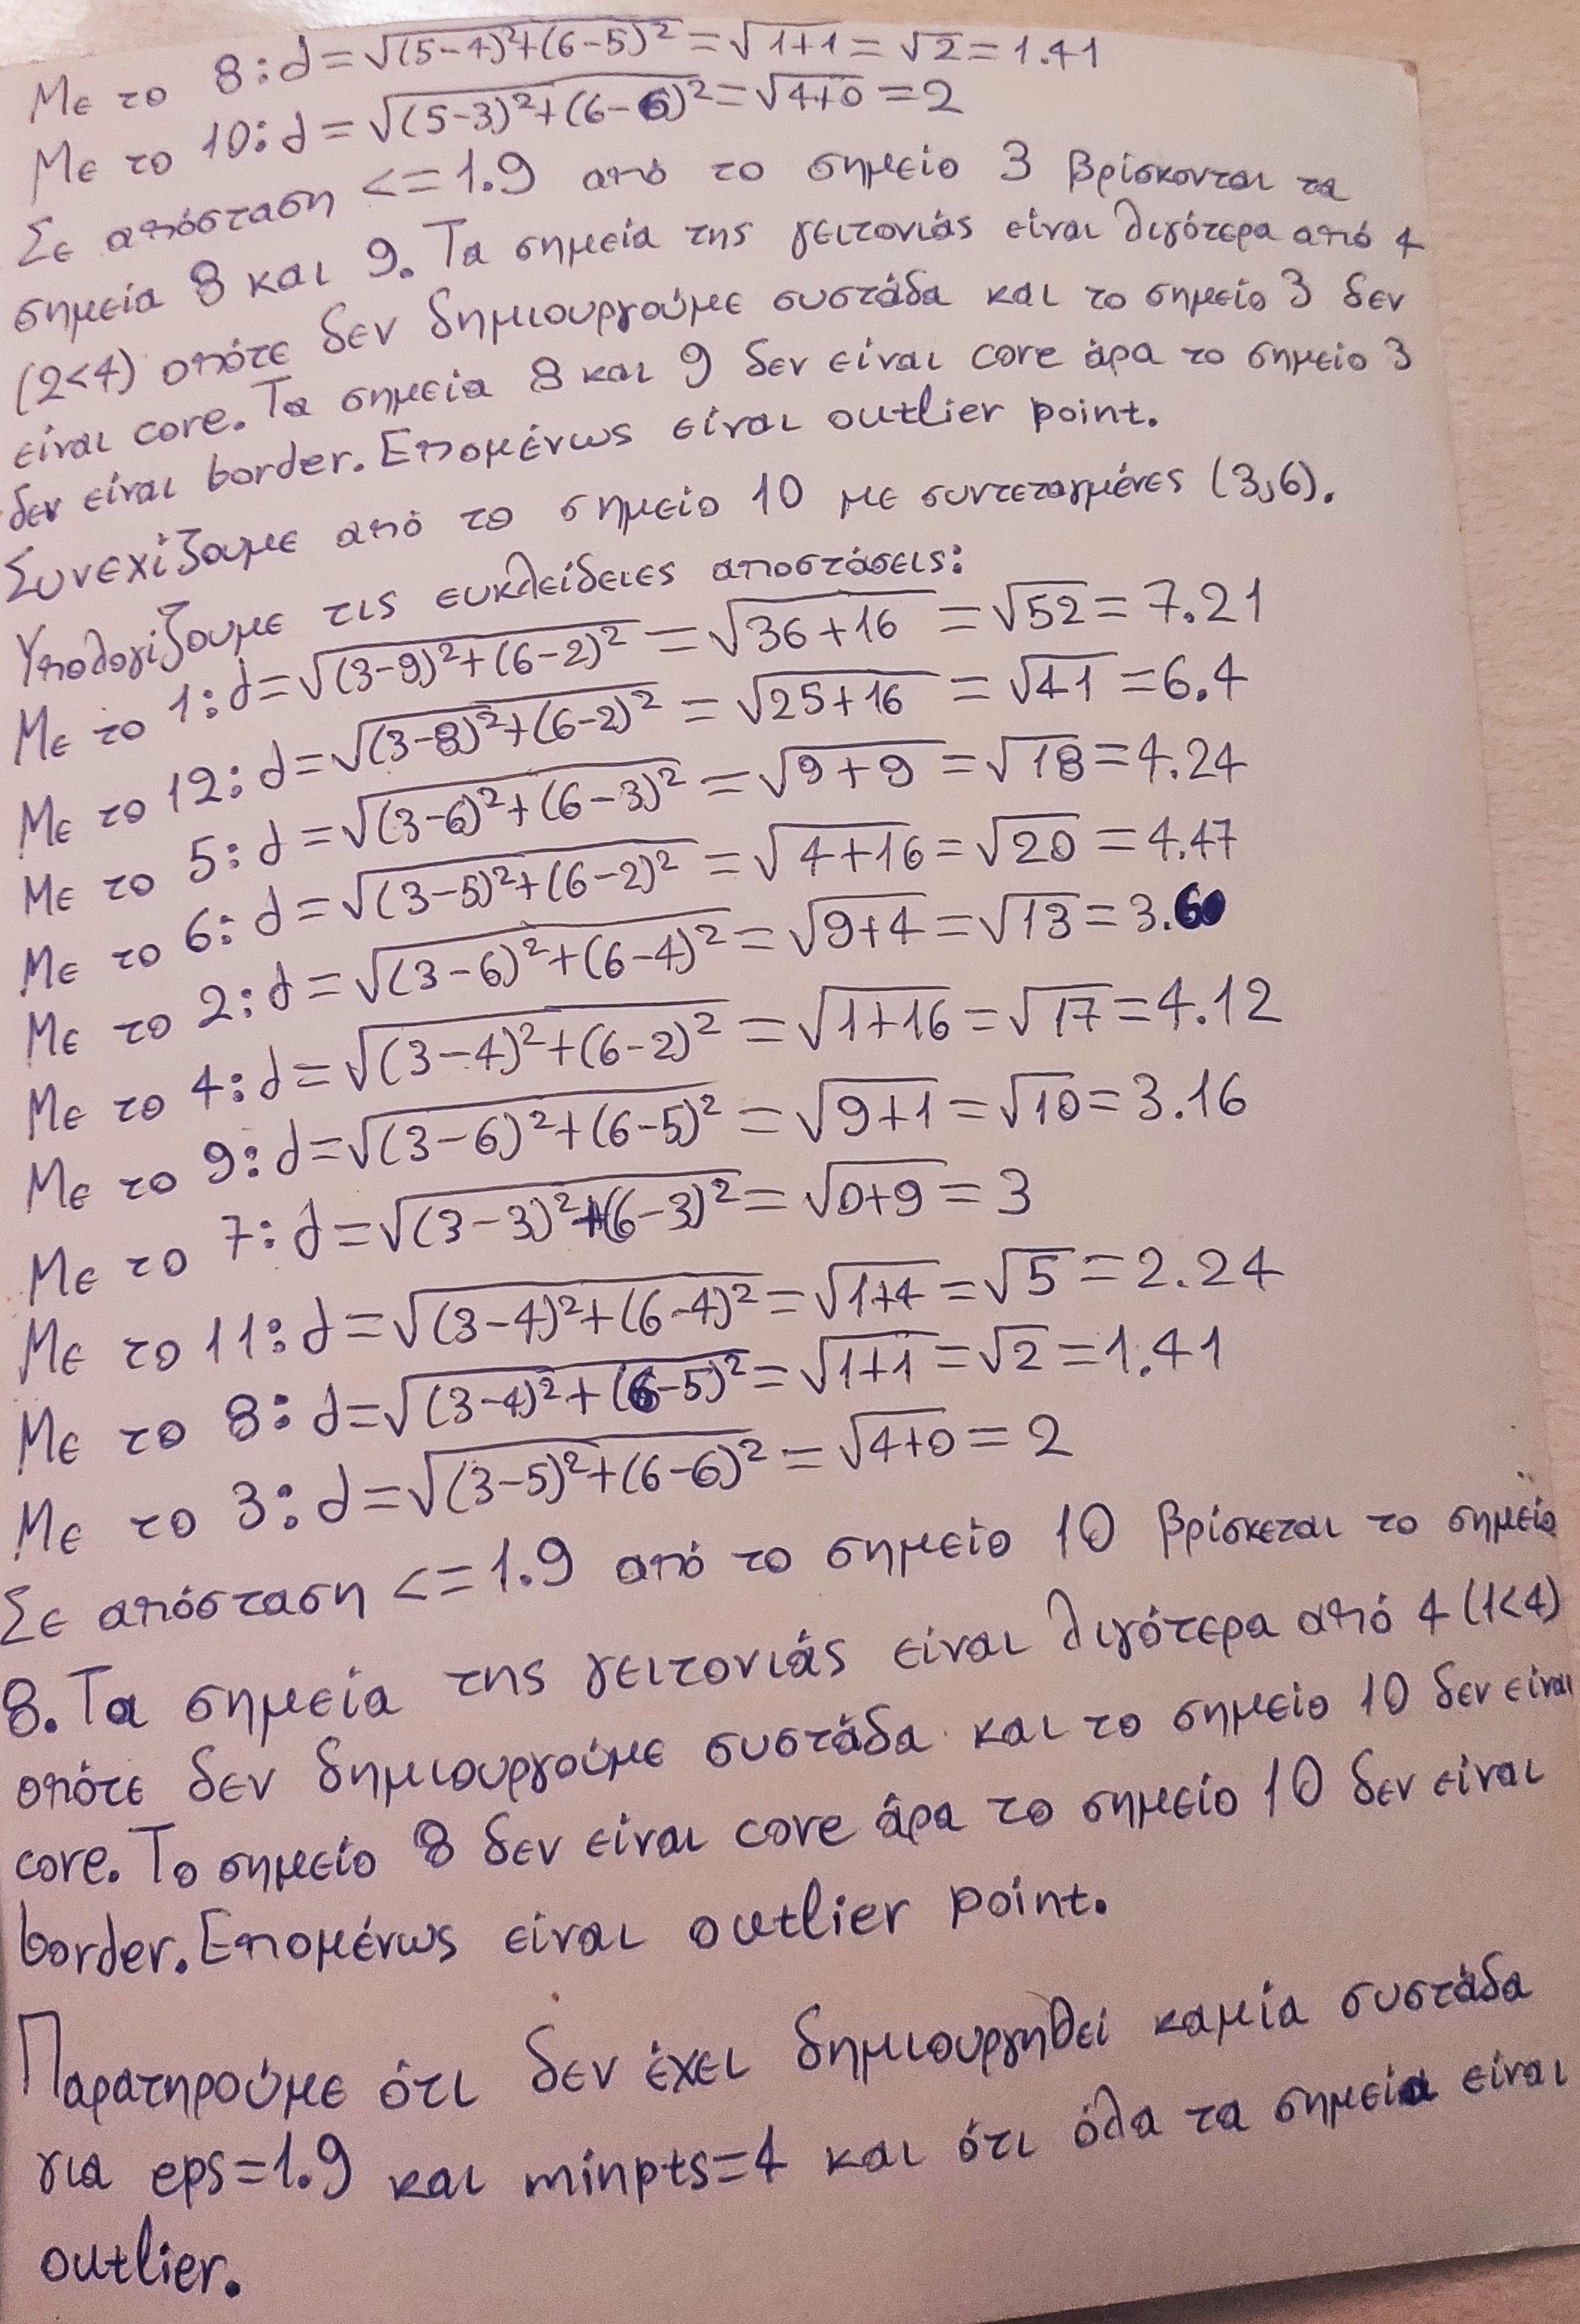 Με το 8: d=√(5-4)²+(6-5)² = √1+1 = √2 = 1.41
Με το 10: d=√(5-3)²+(6-6)² = √4+0 = 2
Σε απόσταση <= 1.9 από το σημείο 3 βρίσκονται τα
σημεία 8 και 9. Τα σημεία της γειτονιάς είναι λιγότερα από 4
(2<4) οπότε δεν δημιουργούμε συστάδα και το σημείο 3 δεν
είναι core. Τα σημεία 8 και 9 δεν είναι core άρα το σημείο 3
δεν είναι border. Επομένως είναι outlier point.
Συνεχίζουμε από το σημείο 10 με συντεταγμένες (3,6).
Υπολογίζουμε τις ευκλείδειες αποστάσεις:
Με το 1: d=√(3-9)²+(6-2)² = √36+16 = √52 = 7.21
Με το 12: d=√(3-8)²+(6-2)² = √25+16 = √41 = 6.4
Με το 5: d=√(3-6)²+(6-3)² = √9+9 = √18 = 4.24
Με το 6: d=√(3-5)²+(6-2)² = √4+16 = √20 = 4.47
Με το 2: d=√(3-6)²+(6-4)² = √9+4 = √13 = 3.60
Με το 4: d=√(3-4)²+(6-2)² = √1+16 = √17 = 4.12
Με το 9: d=√(3-6)²+(6-5)² = √9+1 = √10 = 3.16
Με το 7: d=√(3-3)²+(6-3)² = √0+9 = 3
Με το 11: d=√(3-4)²+(6-4)² = √1+4 = √5 = 2.24
Με το 8: d=√(3-4)²+(6-5)² = √1+1 = √2 = 1.41
Με το 3: d=√(3-5)²+(6-6)² = √4+0 = 2
Σε απόσταση <= 1.9 από το σημείο 10 βρίσκεται το σημείο
8. Τα σημεία της γειτονιάς είναι λιγότερα από 4 (1<4)
οπότε δεν δημιουργούμε συστάδα και το σημείο 10 δεν είναι
core. Το σημείο 8 δεν είναι core άρα το σημείο 10 δεν είναι
border. Επομένως είναι outlier point.
Παρατηρούμε ότι δεν έχει δημιουργηθεί καμία συστάδα
για eps=1.9 και minpts=4 και ότι όλα τα σημεία είναι
outlier.